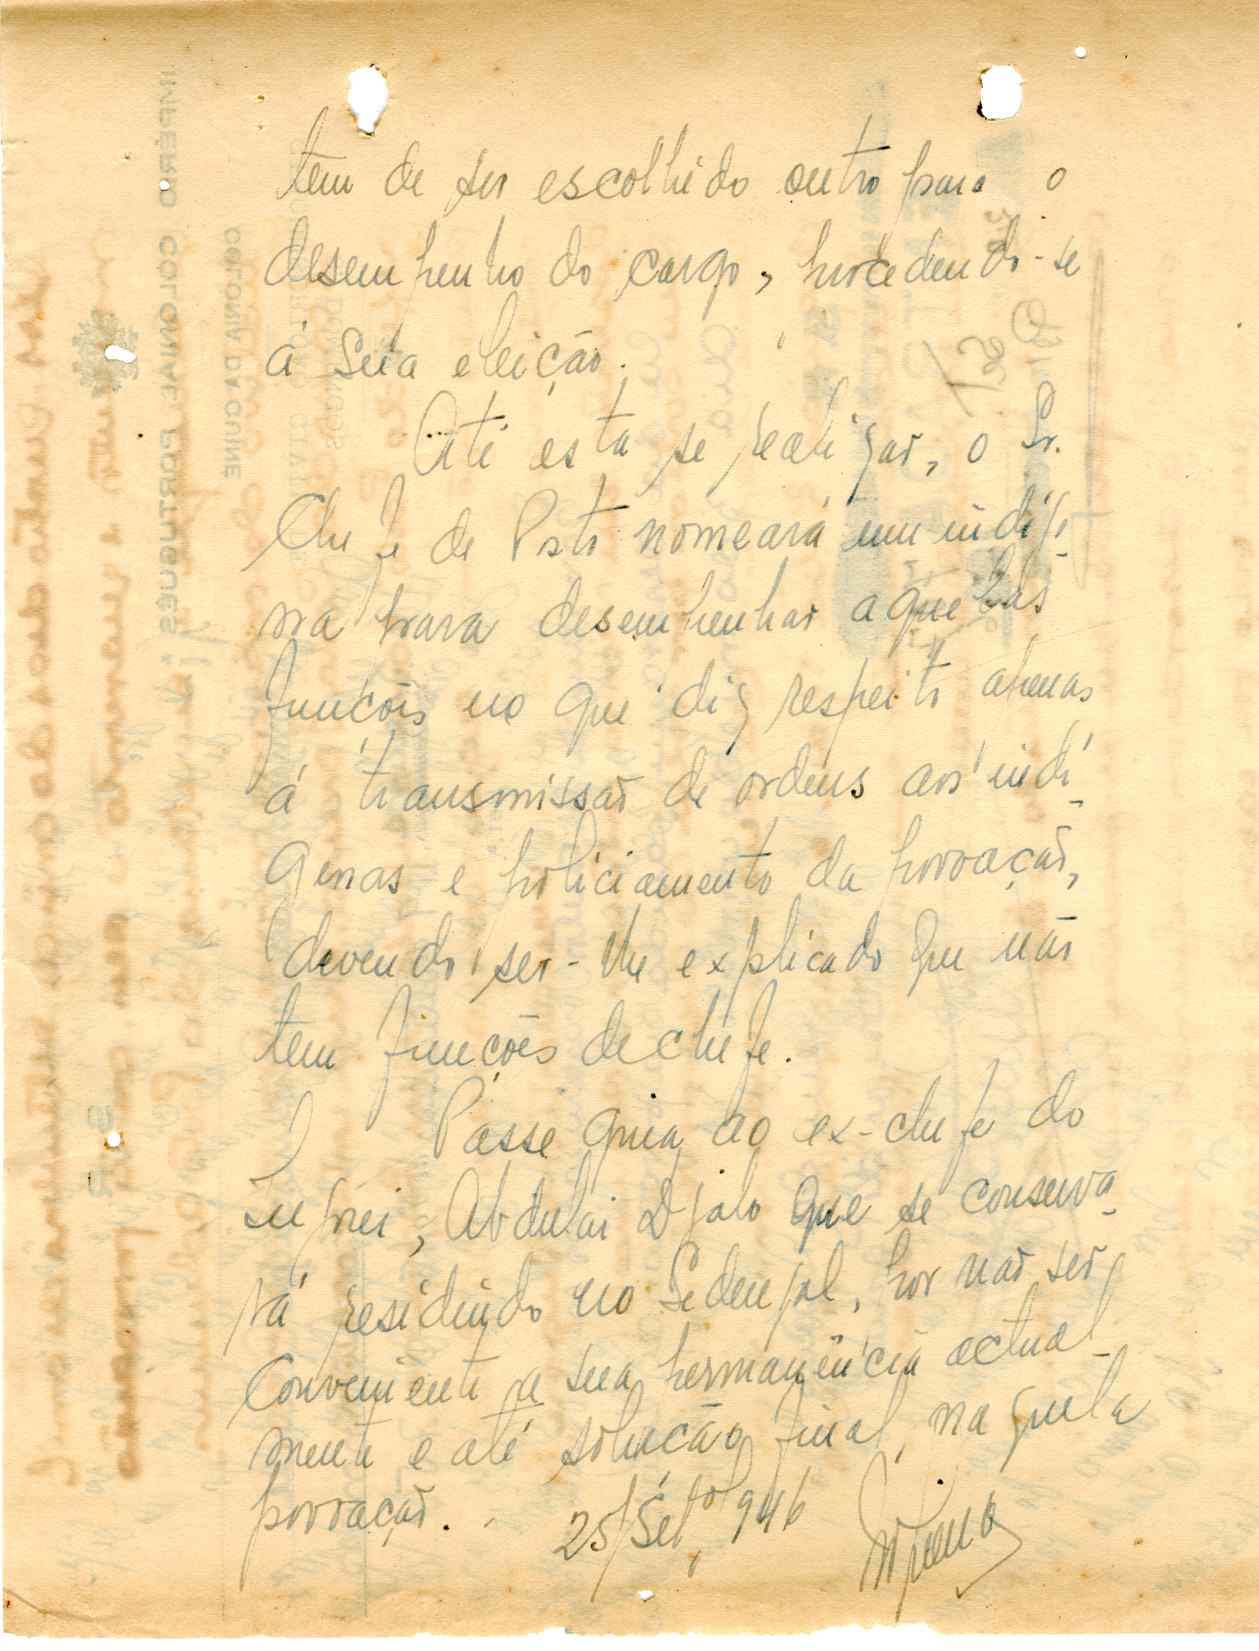 tem de ser escolhido outro para o
desempenho do cargo, procedendo-se
á sua eleição.
Até esta se realizar, o Sr.
Chefe de Posto nomeará um indíge-
na para desempenhar aquelas
funções no que diz respeito apenas
á transmissão de ordens aos indí-
genas e policiamento da povoação,
devendo ser-lhe explicado que não
tem funções de chefe.
Passe guia ao ex-chefe do
Abdulai Djalo que se conserva-
rá residindo no Sedengal, por não ser
conveniente a sua permanência actual-
mente e até solução final, naquela
povoação.
25/Setº 946
IMPERIO COLONIAL PORTUGUÊS
COLONIA DA GUINÉ